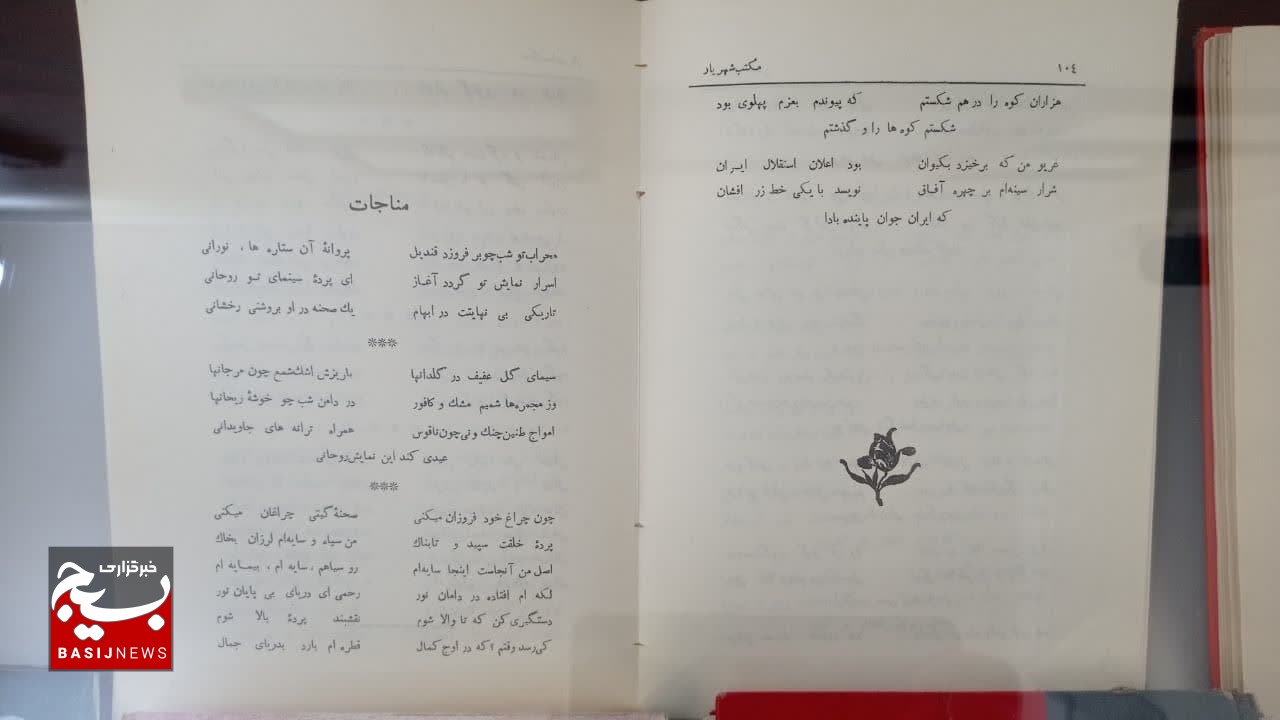 ۱۰٤ مکتب شهریار
هزاران کوه را درهم شکستم که پیوندم بعزم پهلوی بود
شکستم کوه ها را و گذشتم
غریو من که برخیزد بکیوان بود اعلان استقلال ایران
شرار سینه‌ام بر چهره آفاق نویسد با یکی خط زر افشان
که ایران جوان پاینده بادا
مناجات
محراب تو شب چو بر فروزد قندیل پروانهٔ آن ستاره ها، نورانی
اسرار نمایش تو گردد آغاز ای پردهٔ سینمای تو روحانی
تاریکی بی نهایتت در ابهام یك صحنه در او بروشنی رخشانی
***
سیمای گل عفیف در گلدانها باریزش اشك شمع چون مرجانها
وز مجمره‌ها شمیم مشك و کافور در دامن شب چو خوشهٔ ریحانها
امواج طنین چنك و نی چون ناقوس همراه ترانه های جاویدانی
عیدی کند این نمایش روحانی
***
چون چراغ خود فروزان میکنی صحنهٔ گیتی چراغان میکنی
پردهٔ خلقت سپید و تابناك من سیاه و سایه‌ام لرزان بخاك
اصل من آنجاست اینجا سایه‌ام رو سیاهم، سایه ام، بیمایه ام
لکه ام افتاده در دامان نور رحمی ای دریای بی پایان نور
دستگیری کن که تا والا شوم نقشبند پردهٔ بالا شوم
کی رسد وقتم؟ که در اوج کمال قطره ام بارد بدریای جمال
خبرگزاری
بسیج
BASIJNEWS